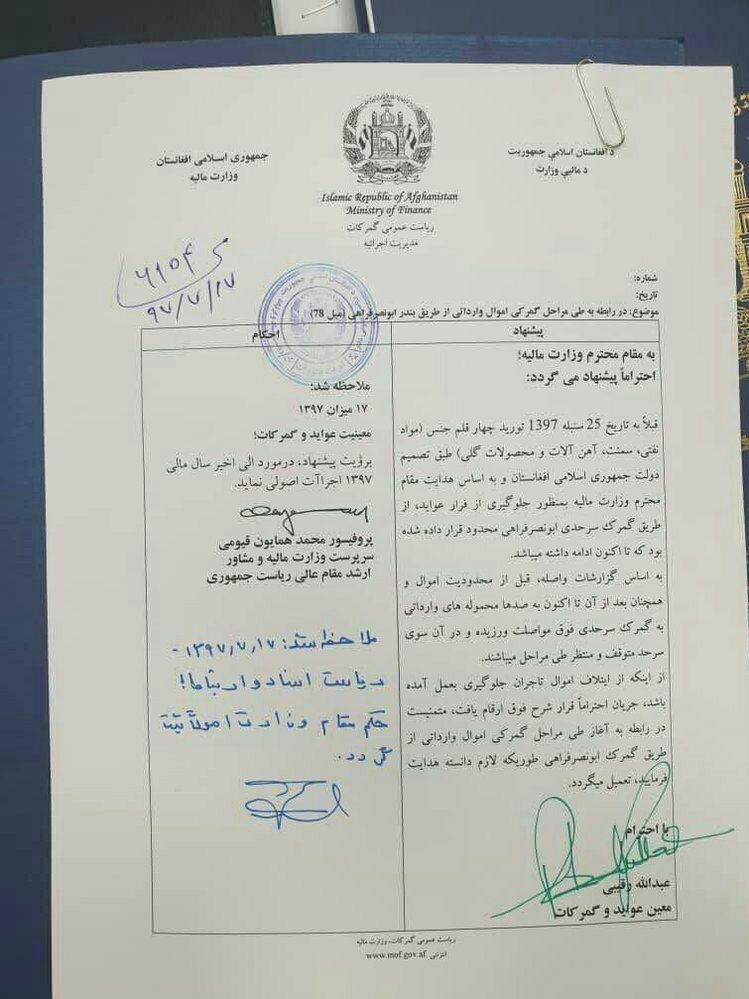 د افغانستان اسلامي جمهوریت
د مالیې وزارت
جمهوری اسلامی افغانستان
وزارت مالیه
Islamic Republic of Afghanistan
Ministry of Finance
ریاست عمومی گمرکات
مدیریت اجرائیه
۶۱۵۴
۹۷/۷/۱۷
شماره:
تاریخ:
موضوع: در رابطه به طی مراحل گمرکی اموال وارداتی از طریق بندر ابونصرفراهی (میل 78)
پیشنهاد
به مقام محترم وزارت مالیه؛
احتراماً پیشنهاد می گردد:
قبلاً به تاریخ 25 سنبله 1397 تورید چهار قلم جنس (مواد
نفتی، سمنت، آهن آلات و محصولات گلی) طبق تصمیم
دولت جمهوری اسلامی افغانستان و به اساس هدایت مقام
محترم وزارت مالیه بمنظور جلوگیری از فرار عواید، از
طریق گمرک سرحدی ابونصرفراهی محدود قرار داده شده
بود که تا اکنون ادامه داشته میباشد.
به اساس گزارشات واصله، قبل از محدودیت اموال و
همچنان بعد از آن تا اکنون به صدها محموله های وارداتی
به گمرک سرحدی فوق مواصلت ورزیده و در آن سوی
سرحد متوقف و منتظر طی مراحل میباشند.
از اینکه از ایتلاف اموال تاجران جلوگیری بعمل آمده
باشد، جریان احتراماً قرار شرح فوق ارقام یافت، متمنیست
در رابطه به آغاز طی مراحل گمرکی اموال وارداتی از
طریق گمرک ابونصرفراهی طوریکه لازم دانسته هدایت
فرمایید، تعمیل میگردد.
با احترام
عبدالله رقیبی
معین عواید و گمرکات
احکام
ملاحظه شد:
۱۷ میزان ۱۳۹۷
معینیت عواید و گمرکات؛
برؤیت پیشنهاد، درمورد الی اخیر سال مالی
۱۳۹۷ اجراآت اصولی نماید.
پروفیسور محمد همایون قیومی
سرپرست وزارت مالیه و مشاور
ارشد مقام عالی ریاست جمهوری
ملاحظه شد: ۱۳۹۷/۷/۱۷-
ریاست اسناد و ارتباط!
حکم مقام وزارت اصولاً ثبت
گردد.
ریاست عمومی گمرکات، وزارت مالیه
www.mof.gov.af